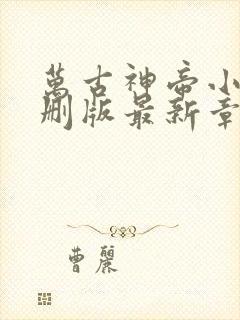 萬古神帝小
刪版最新章
曹麗